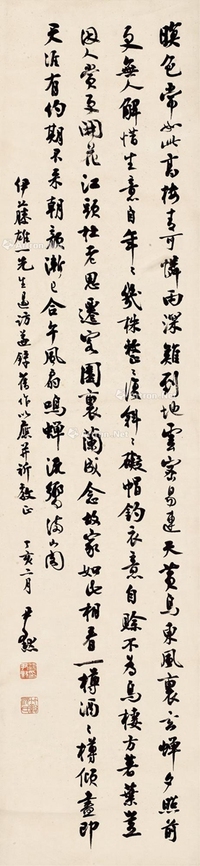 暝色常如此高梧青可憐雨深難到地雲密易連天黃鳥東風裏玄蟬夕照前
更無人解惜生意自年年幾株整整復斜斜礙帽鉤衣意自賒不為烏棲方著葉豈
因人賞更開花江頭杜老思還家園裏蘭成念故家如此相看一樽酒酒樽傾盡即
天涯有約期不來朝顏漸已合午風扇鳴蟬流響滿山閣
伊藤雄一先生過訪並錄舊作以應并祈教正
丁亥二月 尹默